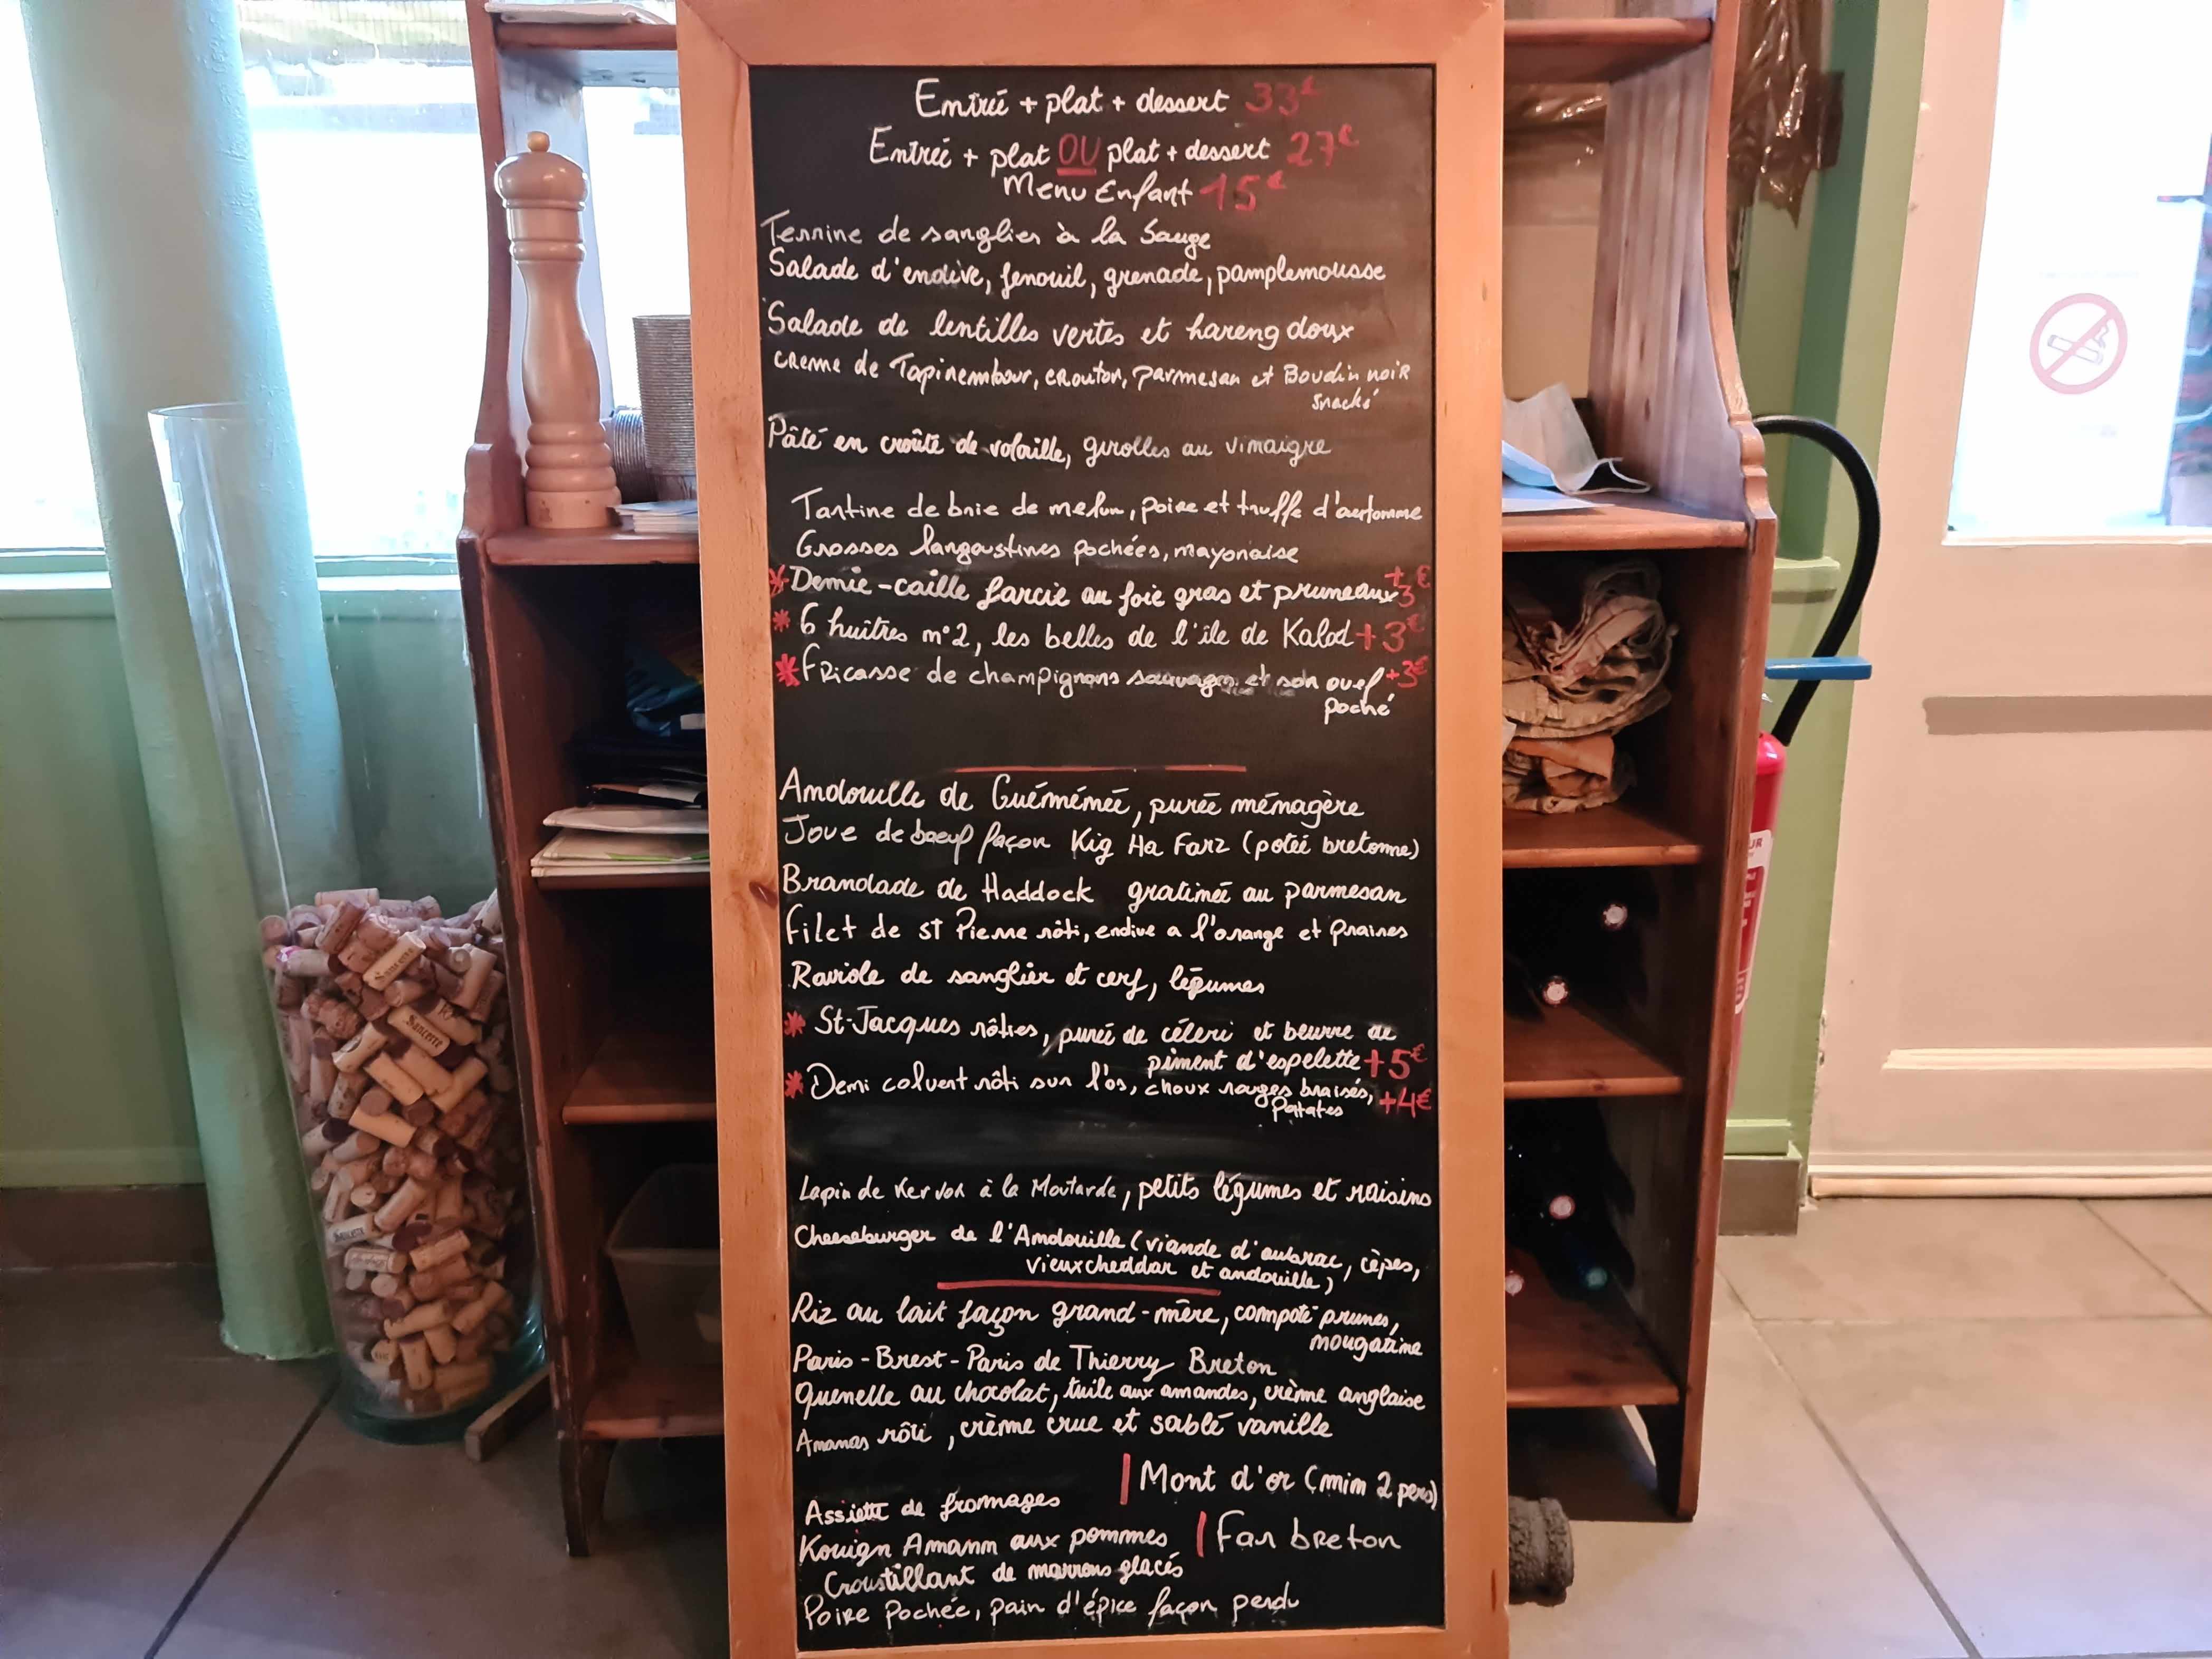 Entrée + plat + dessert 33€
Entrée + plat OU plat + dessert 27€
Menu Enfant 15€
Terrine de sanglier à la Sauge
Salade d'endive, fenouil, grenade, pamplemousse
Salade de lentilles vertes et hareng doux
creme de Topinembour, crouton, parmesan et Boudin noir
snacké
Pâté en croûte de volaille, girolles au vimaigre
Tartine de brie de melun, poire et truffe d'automme
Grosses langoustines pochées, mayonaise
* Demie-caille farcie au foie gras et pruneaux +3€
* 6 huîtres n°2, les belles de l'île de Kalod +3€
* Fricasse de champignons sauvages et son ouef +3€
poché
Andouille de Guémémée, purée ménagère
Joue de boeuf façon Kig Ha Farz (potée bretonne)
Brandade de Haddock gratinée au parmesan
Filet de St Pierre rôti, endive a l'orange et praires
Raviole de sanglier et cerf, légumes
* St-Jacques rôties, purée de céleri et beurre au
piment d'espelette +5€
* Demi colvert rôti sur l'os, choux rouges braisés, +4€
Patates
Lapin de Kervoh à la Moutarde, petits légumes et raisins
Cheeseburger de l'Andouille (viande d'aubrac, cèpes,
vieux cheddar et andouille)
Riz au lait façon grand-mère, compote prunes,
nougatine
Paris-Brest-Paris de Thierry Breton
Quenelle au chocolat, tuile aux amandes, crème anglaise
Ananas rôti, crème crue et sablé vanille
Mont d'or (mim 2 pers)
Assiette de fromages
Kouign Amann aux pommes | Far breton
Croustillant de marrons glacés
Poire Pochée, pain d'épice façon perdu
Sancerre